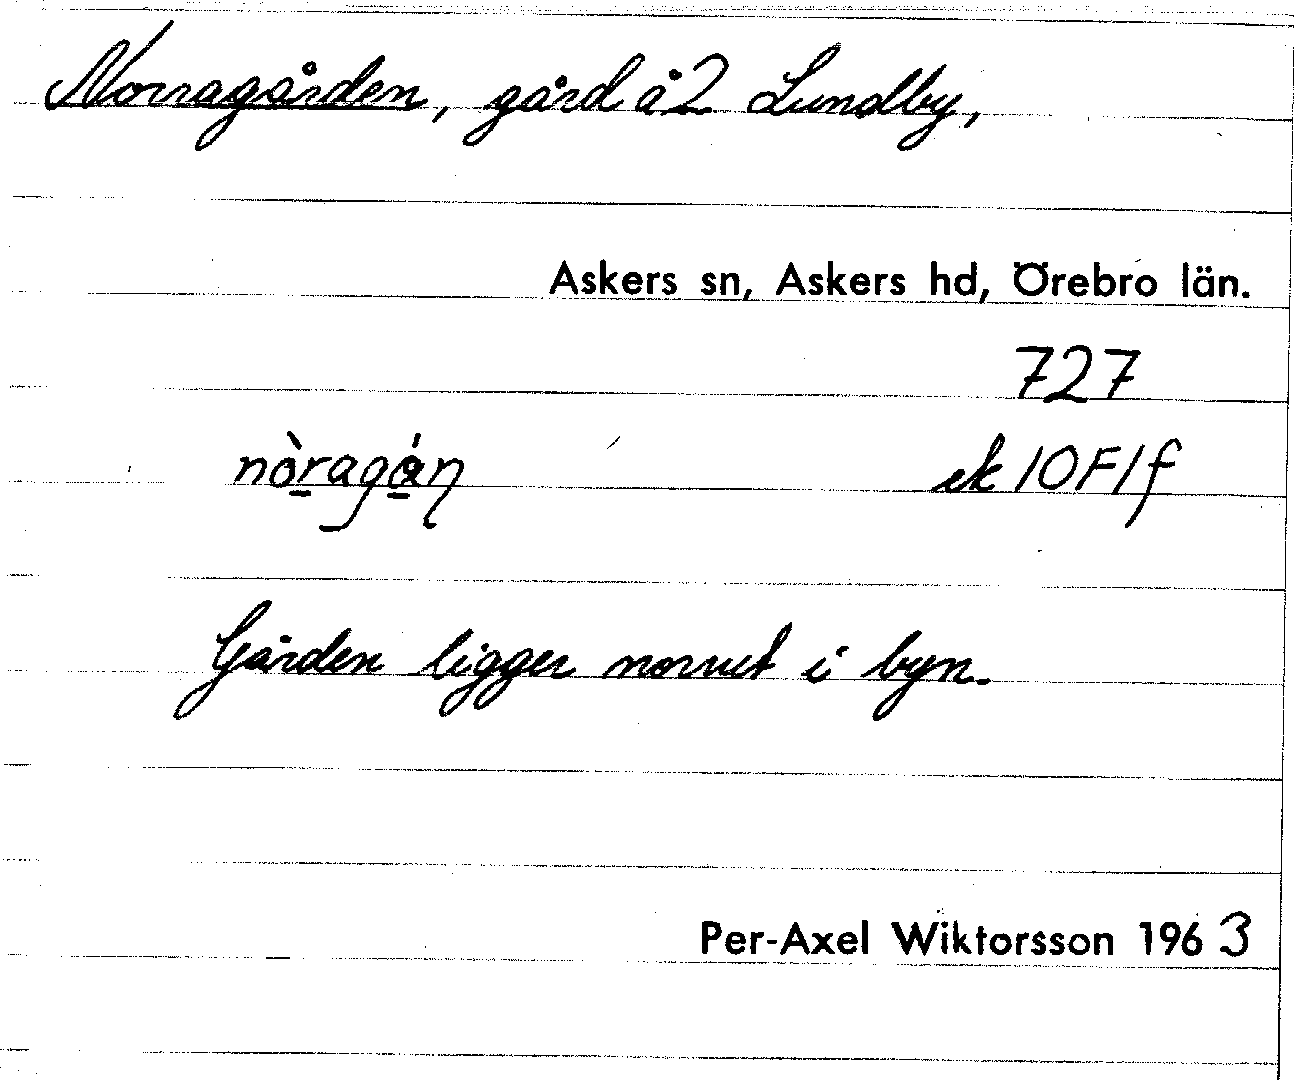 Norragården, gård å 2 Lundby,
Askers sn, Askers hd, Örebro län.
727
nòragán ek 10F1f
Gården ligger norrut i byn.
Per-Axel Wiktorsson 1963